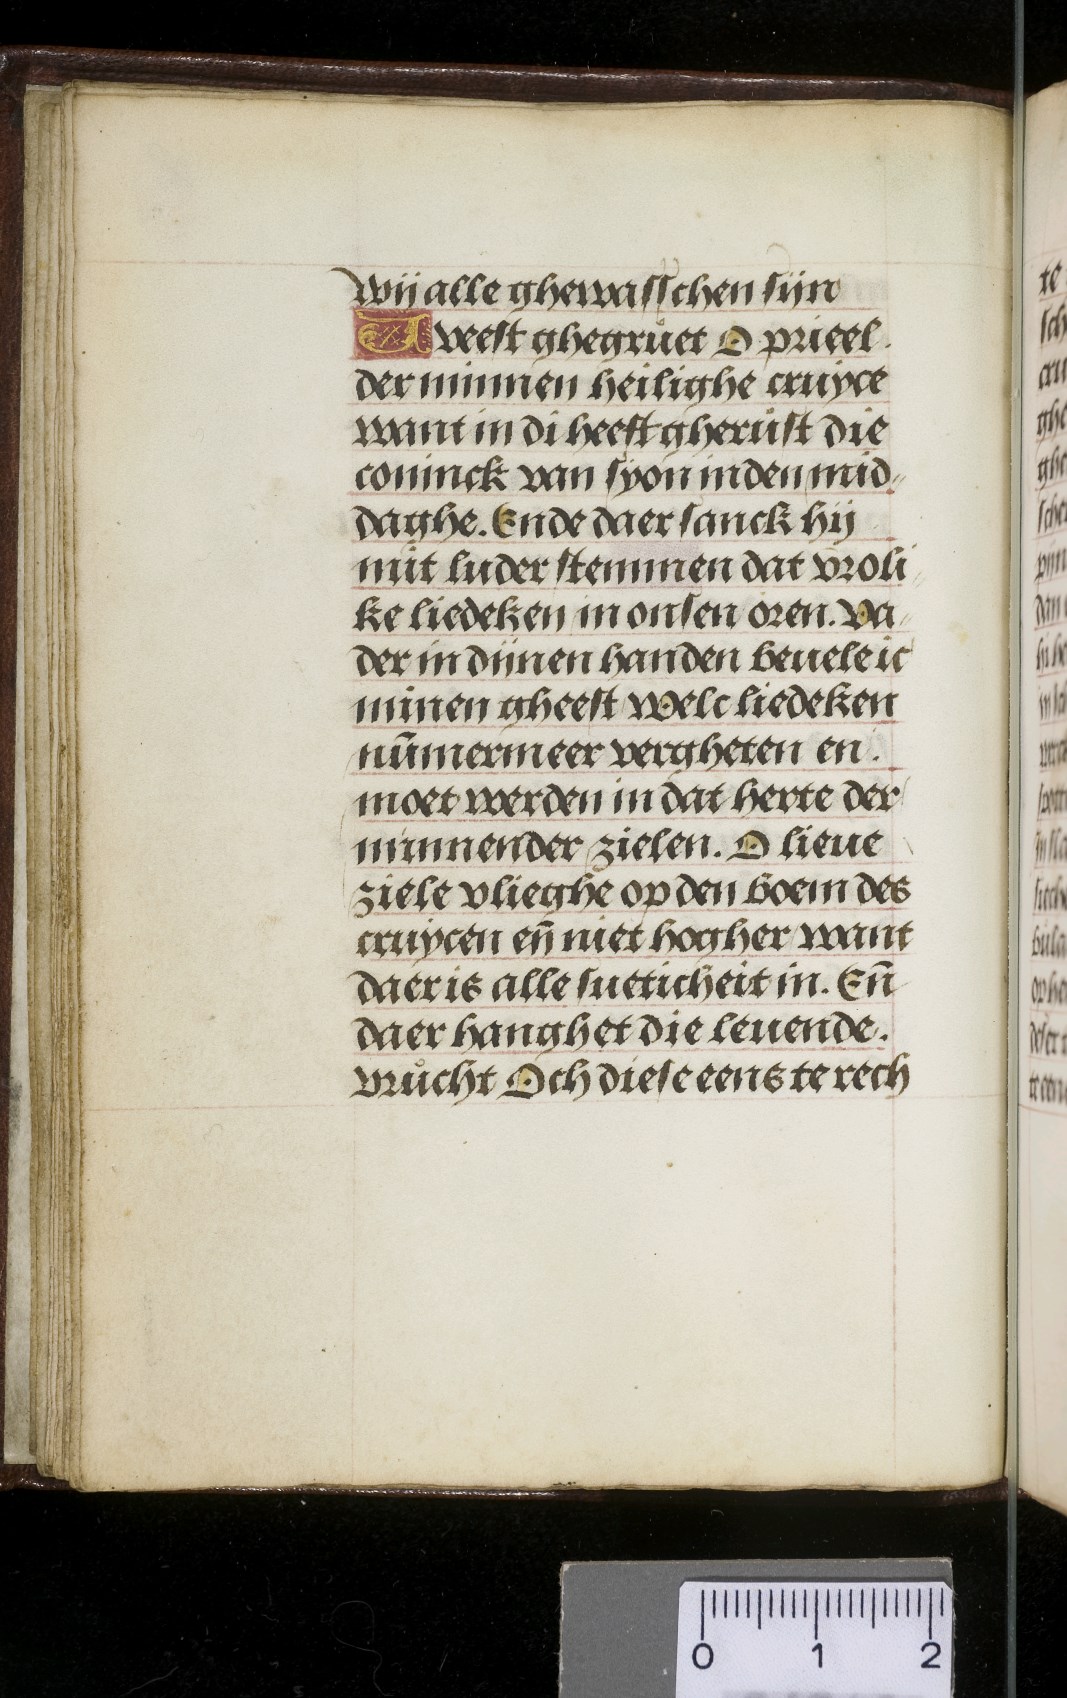 wij alle ghewasschen sijn
Weest ghegruet O prieel
der minnen heilighe cruyce
want in di heeft gherust die
coninck van syon in den mid
daghe. Ende daer sanck hij
mit luder stemmen dat vroli
ke liedeken in onsen oren. Va
der in dijnen handen beuele ic
minen gheest Welc liedeken
nūmermeer vergheten en
moet werden in dat herte der
minnender zielen. O lieue
ziele vlieghe op den boem des
cruycen en̄ niet hogher want
daer is alle sueticheit in. En̄
daer hanghet die leuende.
vrucht Och diese eens te rech
0 1 2